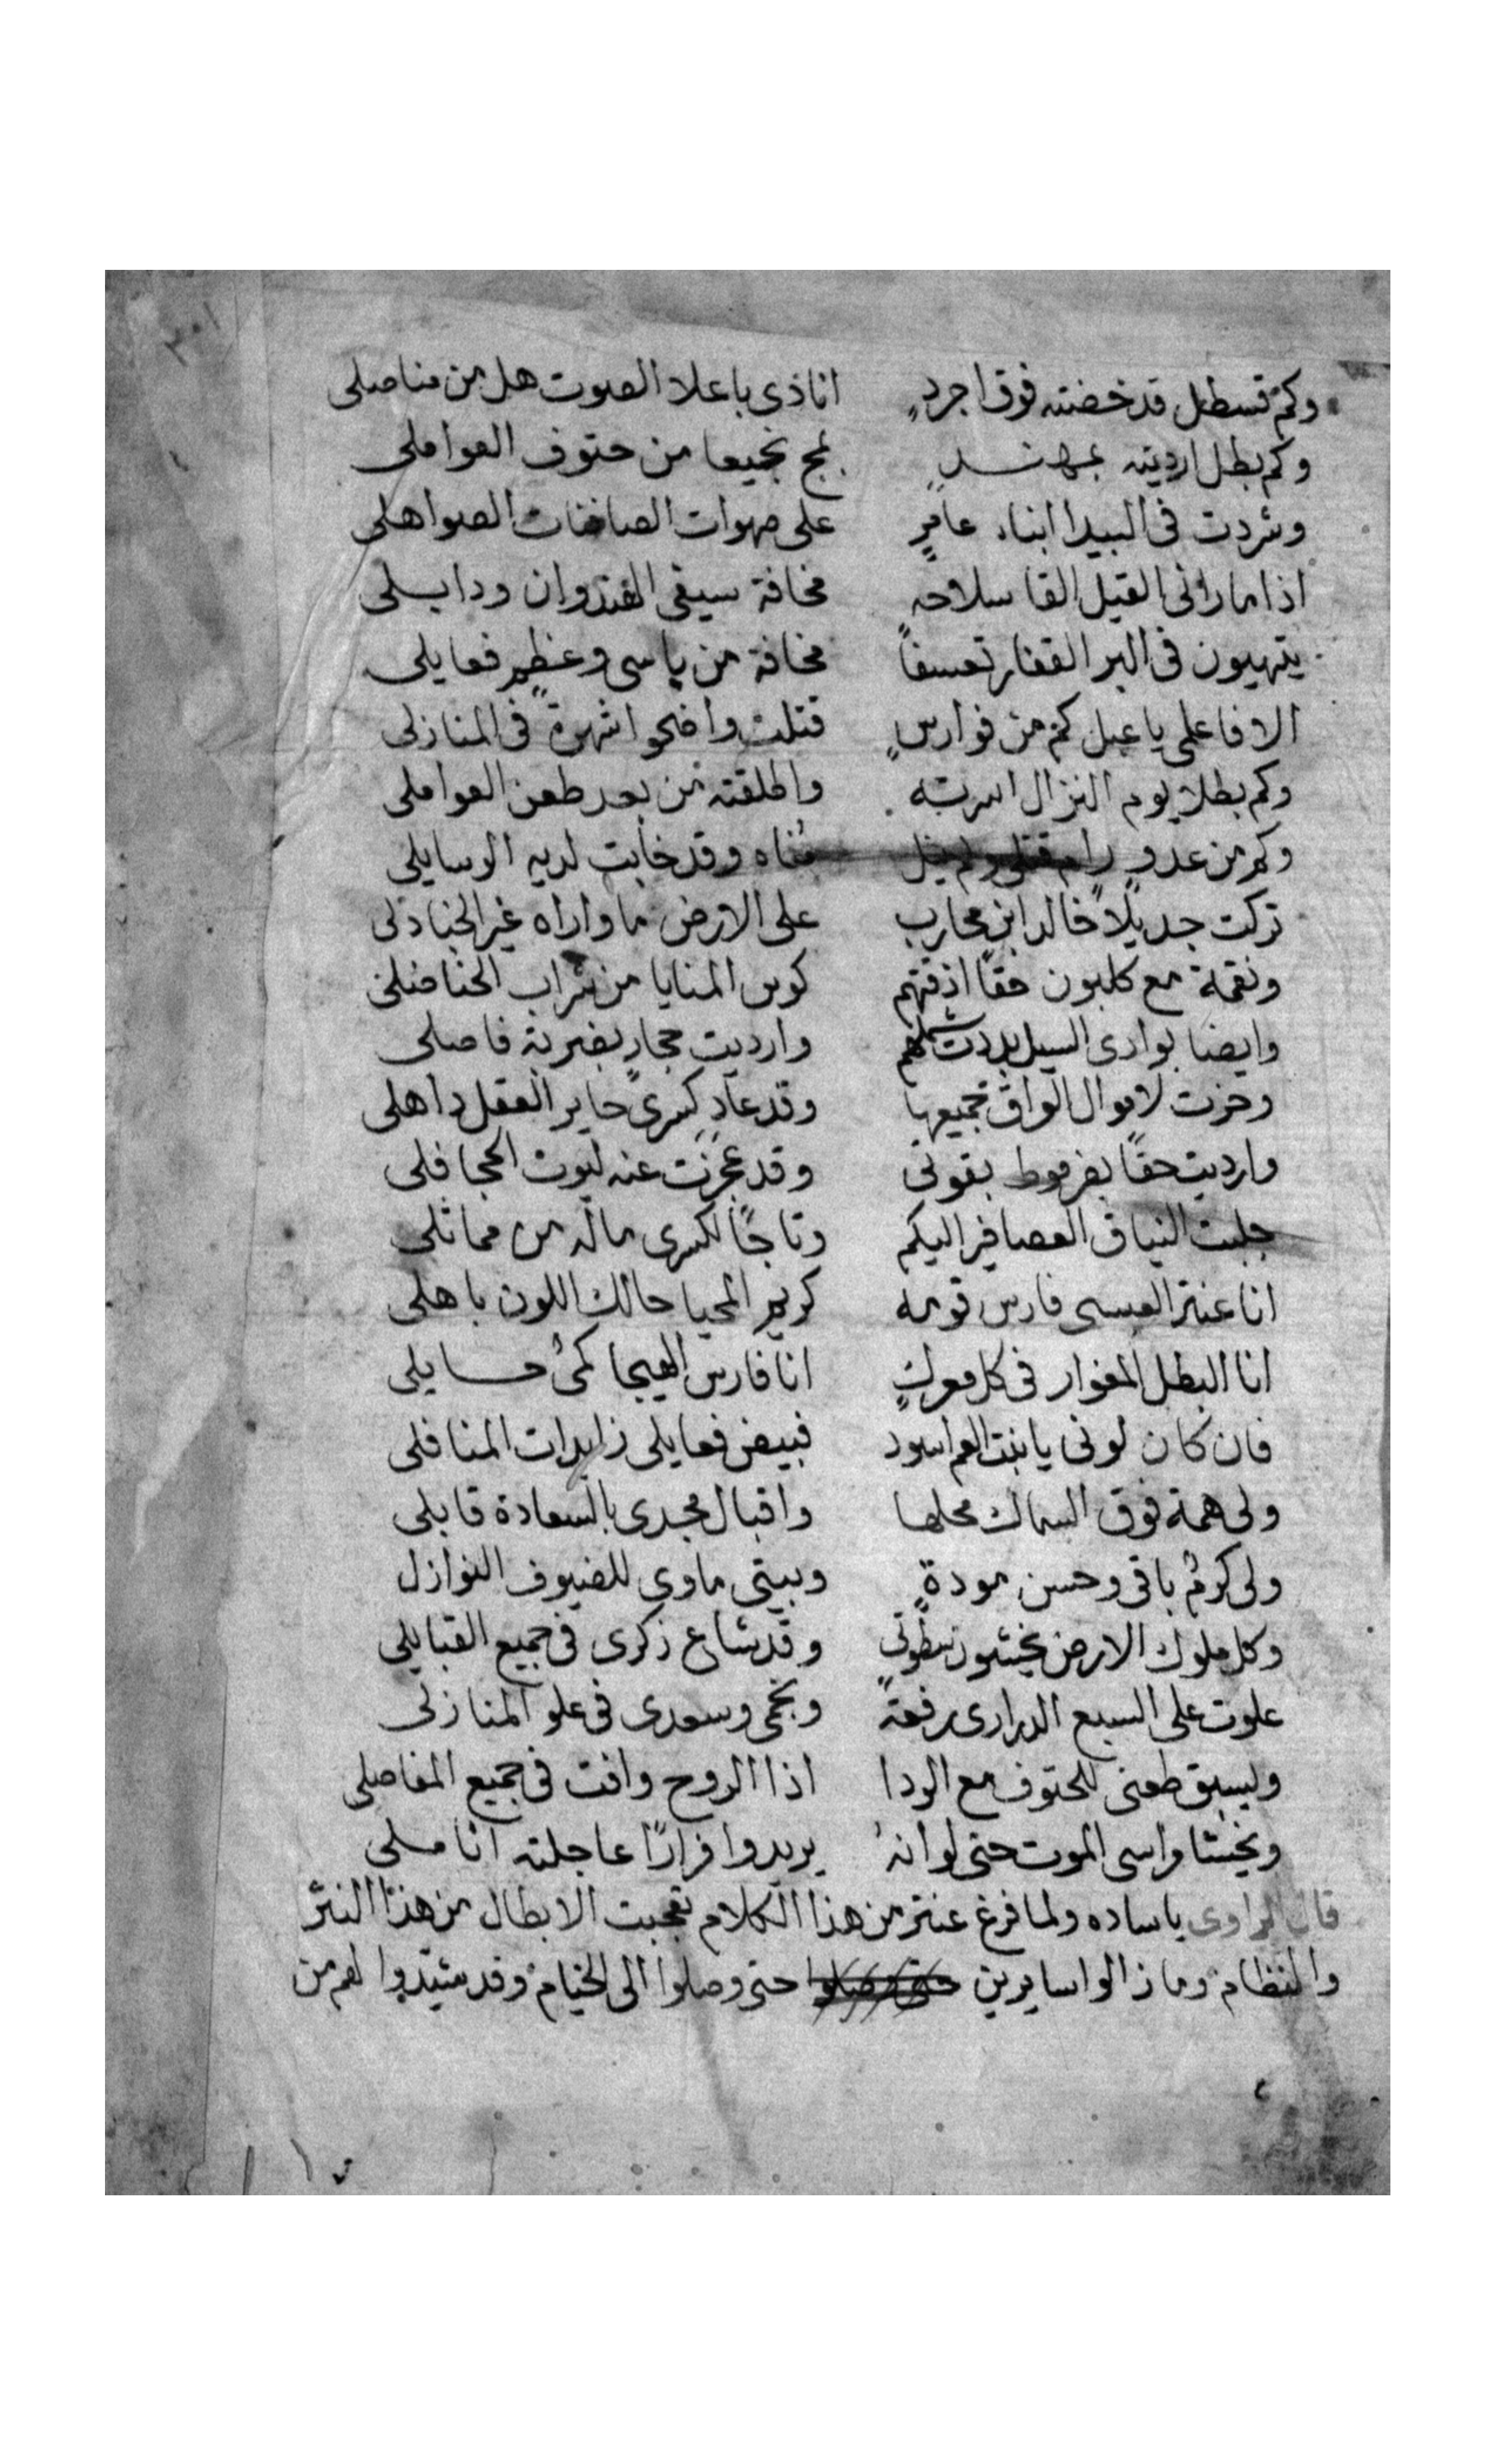 ٣٠١
وكم قسطل قد خضته فوق اجردٍ انا ذى باعلا الصوت هل من مناصلى
وكم بطل ارديته بمهندٍ يمج نجيعا من حتوف العواملى
وشردت فى البيدا ابناء عامرٍ على صهوات الصافنات الصواهلى
اذا ما رانى القيل القا سلاحه مخافة سيفى الهندوان ودابلى
يتهيون فى البر القفار تعسفاً مخافة من باسى وعظم فعايلى
الا فاعلمى يا عبل كم من فوارسٍ قتلت واضحوا شهرةً فى المنازلى
وكم بطلا يوم النزال اسرته واطلقته من بعد طعن العواملى
وكم من عدوٍ رام قتلى ولم ينل مُناه وقد خابت لديه الوسايلى
تركت جديلاً خالد ابن محارب على الارض ما واراه غير الجنادلى
ونقمة مع كلبون حقاً اذقتهم كوس المنايا من شراب الحناضلى
وايضا بوادى السيل بددت شملهم وارديت حجارٍ بضربة فاصلى
وحزت لاموال العراق جميعها وقد عاد كسرى حاير العقل داهلى
وارديت حقاً بضرموط بقوتى وقد عجزت عنه ليوت الحجافلى
جلبت النياق العصافير اليكم وتاجاً لكسرى ماله من مماثلى
انا عنتر العبسى فارس قومه كريم المحيا حالك اللون باهلى
انا البطل المغوار فى كل معركٍ انا فارس الهيجا كمىُ حسايلى
فان كان لونى يا بنت العم اسود فبيض فعايلى زايدات المنافلى
ولى همة فوق السماك محلها واقبال مجدى بالسعادة قابلى
ولى كرمُ باقى وحسن مودةٍ وبيتى ماوى للضيوف النوازل
وكل ملوك الارض يخشون سطوتى وقد شاع ذكرى فى جميع القبايلى
علوت على السبع الدرارى رفعةً ونجمى وسعدى فى علو المنازلى
وليسبق طعنى للحتوف مع الردا اذا الروح وافت فى جميع المفاصلى
ويخشا واسى الموت حتى لو انهُ يريدوا فراراً عاجلته اناملى
قال الراوى يا ساده ولما فرغ عنتر من هذا الكلام تعجبت الابطال من هذا النثر
والنظام وما زالوا سايرين حتى وصلوا حتى وصلوا الى الخيام وقد شيدوا لهم من